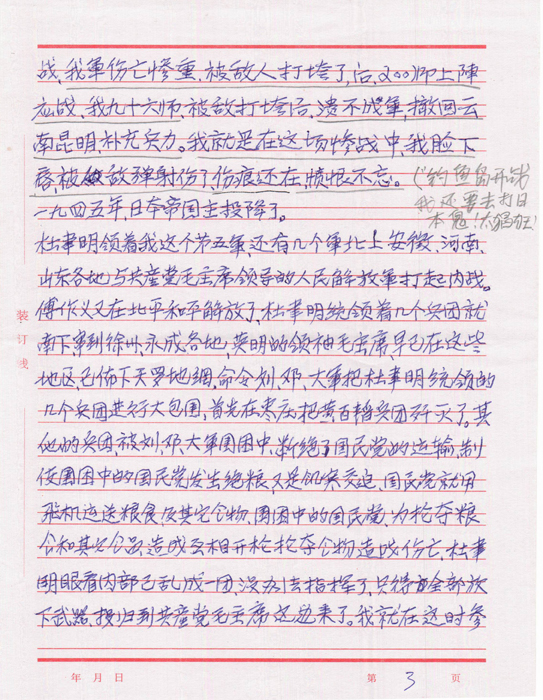 战,我军伤亡惨重,被敌人打垮了,后,200师上阵
应战,我九十六师,被敌打垮后,溃不成军,撤回云
南昆明,补充实力。我就是在这场惨战中,我脸下
唇,被敌弹射伤了,伤痕还在,愤恨不忘。(钓鱼岛开战
我还要去打日
本鬼!太猖狂!
一九四五年,日本帝国主投降了。
杜聿明领着我这个第五军,还有几个军北上安徽,河南,
山东各地与共産党毛主席领导的人民解放军打起内战。
傅作义又在北平和平解放了,杜聿明统领着几个兵团就
南下,窜到徐州,永成各地,英明的领袖毛主席早已在这些
地区,已佈下天罗地網,命令刘,邓,大军把杜聿明统领的
几个兵团进行大包围,首先在枣庆把黄百韬兵团歼灭了。其
他的兵团,被刘,邓,大军围困中,断绝了国民党的运输,制
使围困中的国民党发生绝粮,又是饥寒交迫,国民党就用
飛机运送粮食及其它食物,围困中的国民党,为抢夺粮
食和其它食品,造成互相开枪抢夺食物造成伤亡,杜聿
明眼看内部已乱成一团,没办法指挥了,只得全部放
下武器,投归到共産党毛主席这边来了。我就在这时参
装订线
年 月 日
第 3 页